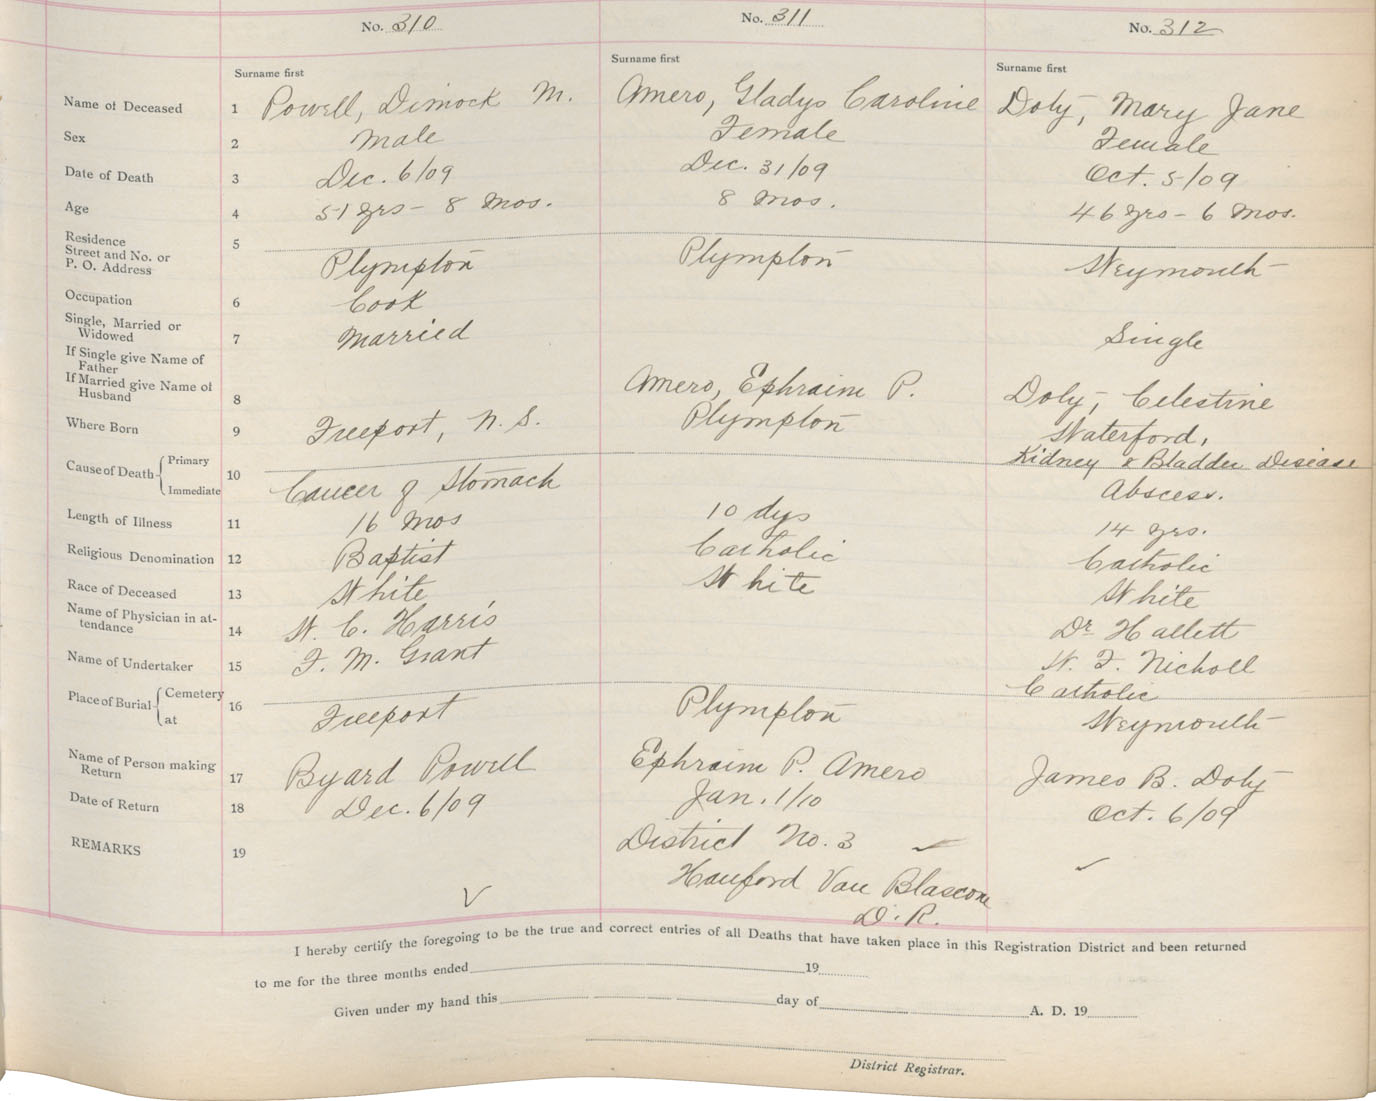 No. 310 No. 311 No. 312
Surname first Surname first Surname first
Name of Deceased 1 Powell, Dimock M. Amero, Gladys Caroline Doty, Mary Jane
Sex 2 Male Female Female
Date of Death 3 Dec. 6/09 Dec. 31/09 Oct. 5/09
Age 4 51 yrs - 8 Mos. 8 Mos. 46 yrs - 6 Mos.
Residence
Street and No. or
P. O. Address 5 Plympton Plympton Weymouth
Occupation 6 Cook
Single, Married or
Widowed 7 Married Single
If Single give Name of
Father
If Married give Name of
Husband 8 Amero, Ephraim P. Doty, Celestine
Where Born 9 Freeport, N.S. Plympton Waterford,
Cause of Death Primary 10 Kidney & Bladder Disease
Immediate Cancer of Stomach Abscess.
Length of Illness 11 16 Mos 10 dys 14 yrs.
Religious Denomination 12 Baptist Catholic Catholic
Race of Deceased 13 White White White
Name of Physician in at-
tendance 14 W. C. Harris Dr Hallett
Name of Undertaker 15 F. M. Grant W. F. Nicholl
Place of Burial Cemetery 16 Catholic
at Freeport Plympton Weymouth
Name of Person making
Return 17 Byard Powell Ephraim P. Amero James B. Doty
Date of Return 18 Dec. 6/09 Jan. 1/10 Oct. 6/09
REMARKS 19 District No. 3
Hanford Van Blascom
D. R.
I hereby certify the foregoing to be the true and correct entries of all Deaths that have taken place in this Registration District and been returned
to me for the three months ended 19
Given under my hand this day of A. D. 19
District Registrar.